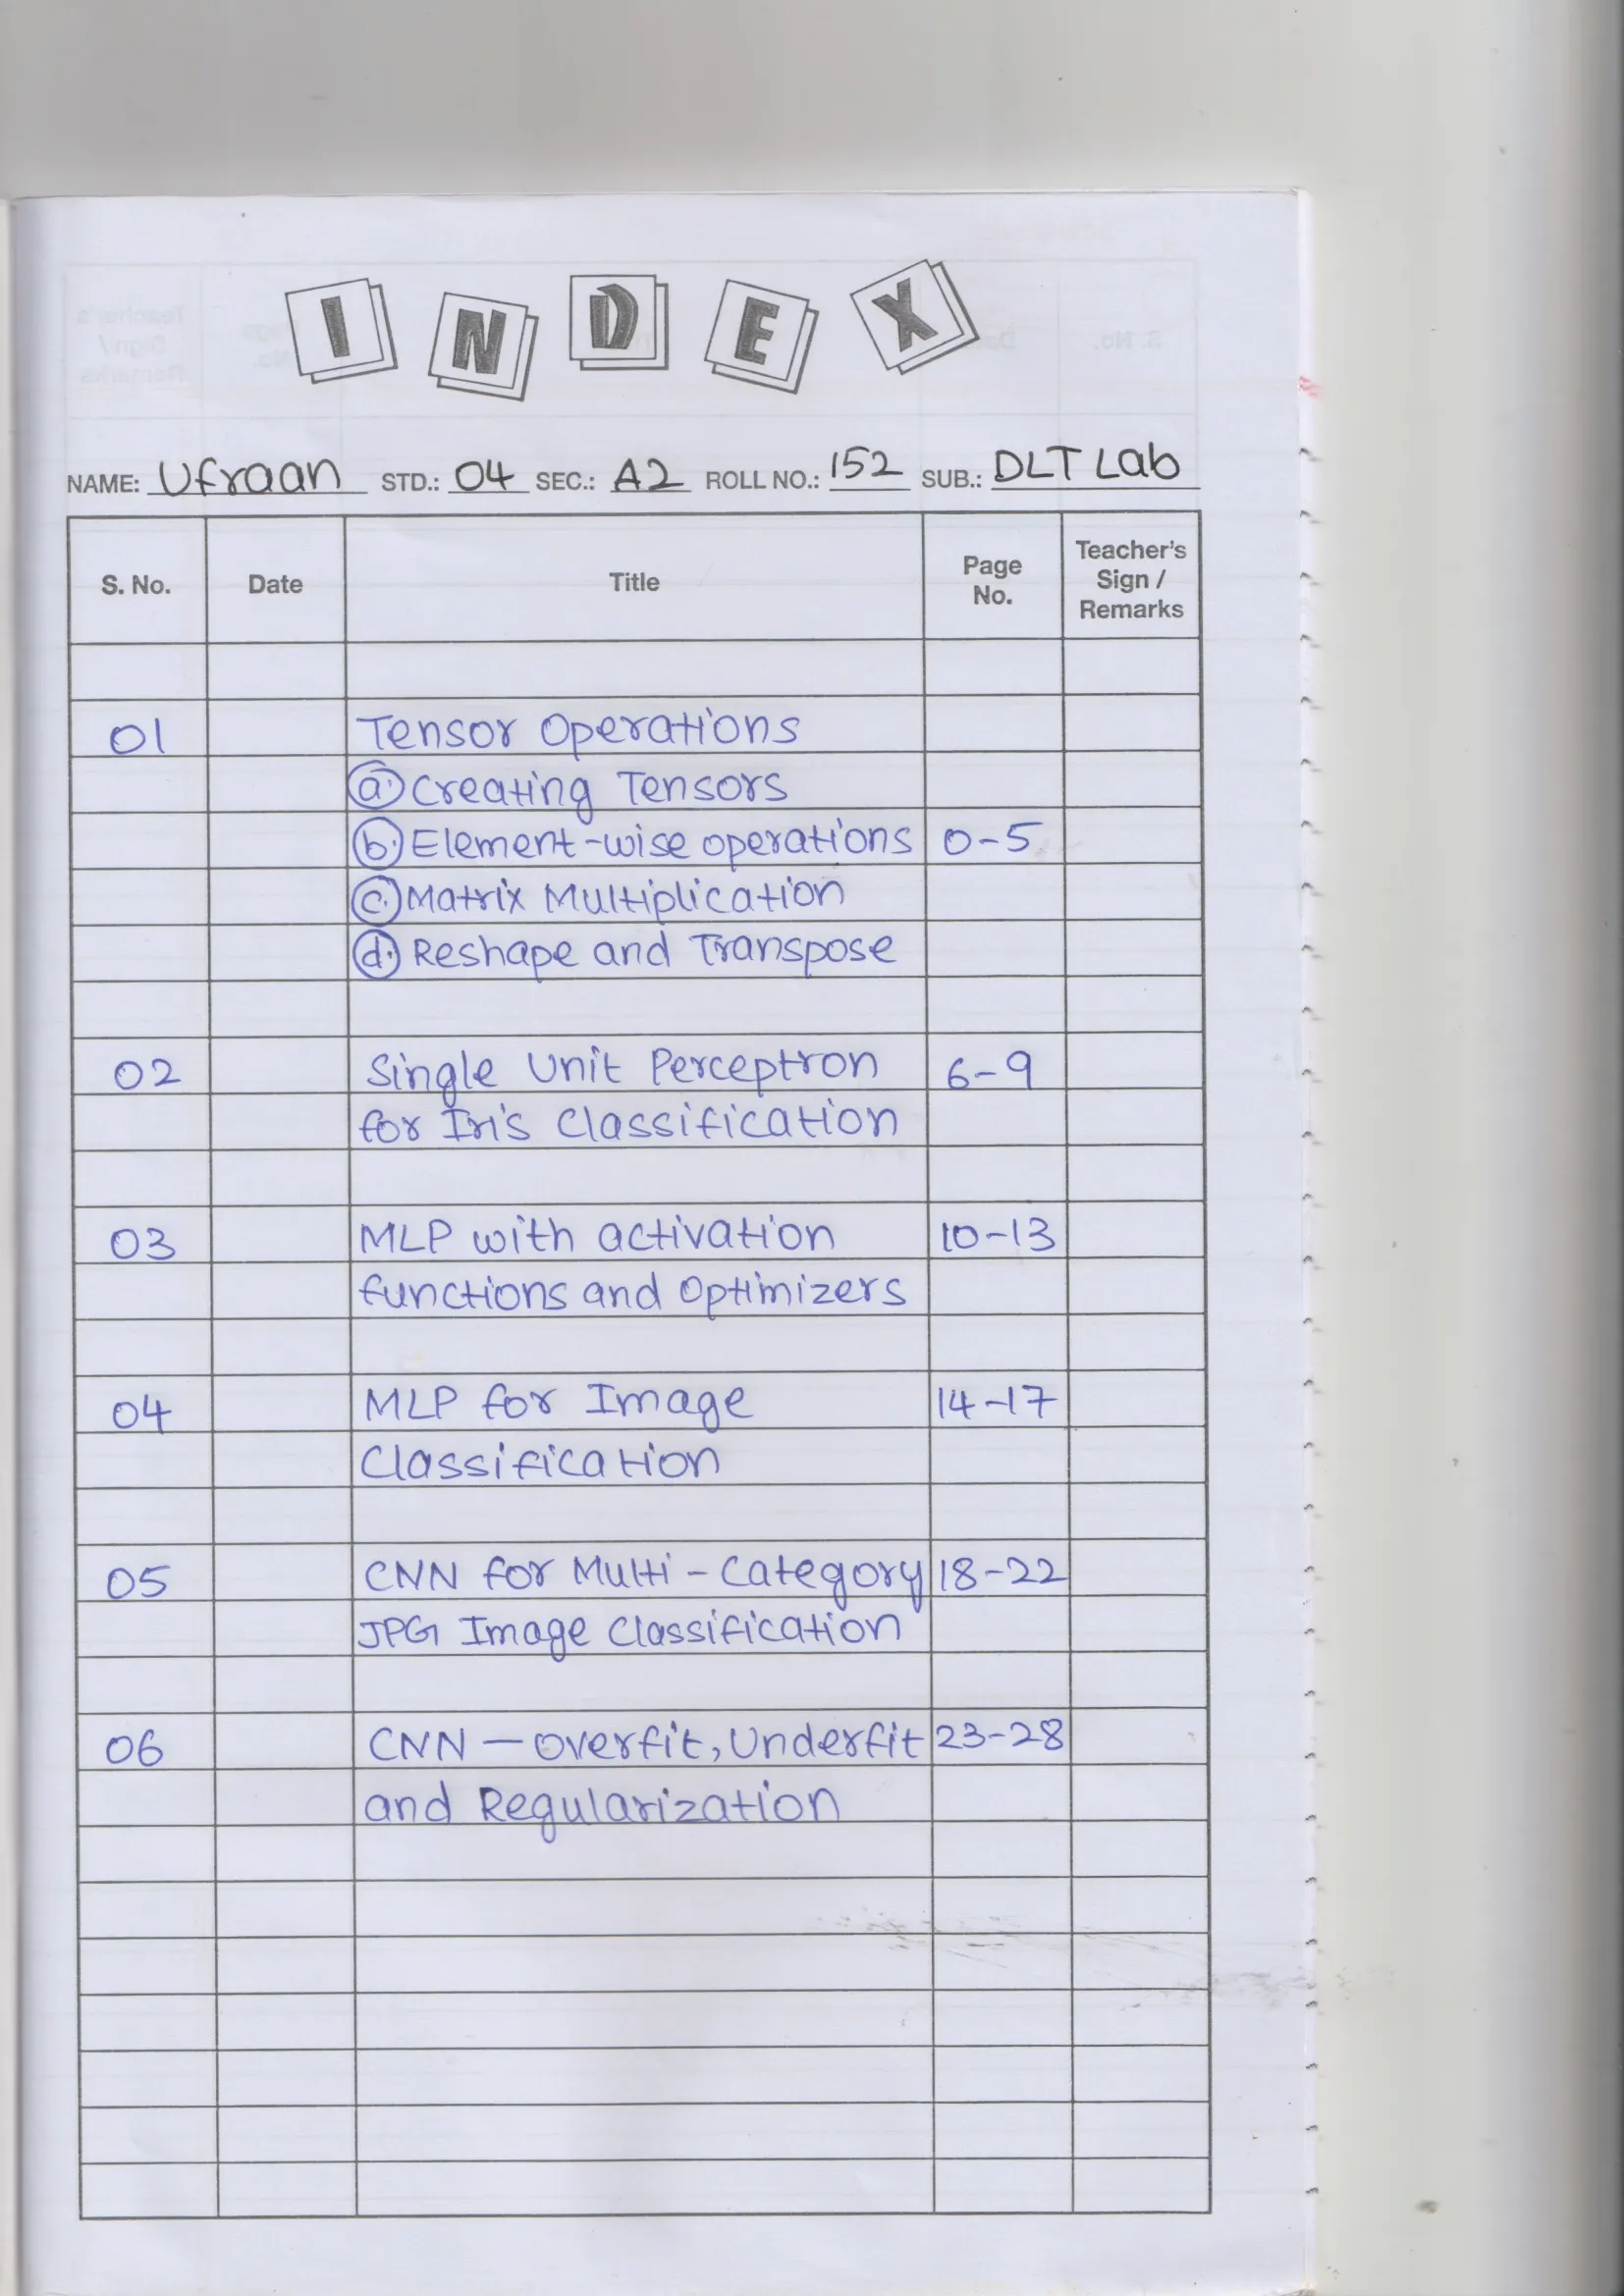 INDEX
NAME: Ufraan STD.: 04 SEC.: A2 ROLL NO.: 152 SUB.: DLT Lab
S. No. Date Title Page No. Teacher's Sign / Remarks
01 Tensor Operations
a. Creating Tensors
b. Element-wise operations 0-5
c. Matrix Multiplication
d. Reshape and Transpose
02 Single Unit Perceptron 6-9
for Iris Classification
03 MLP with activation 10-13
functions and Optimizers
04 MLP for Image 14-17
Classification
05 CNN for Multi-Category 18-22
JPG Image Classification
06 CNN — Overfit, Underfit 23-28
and Regularization